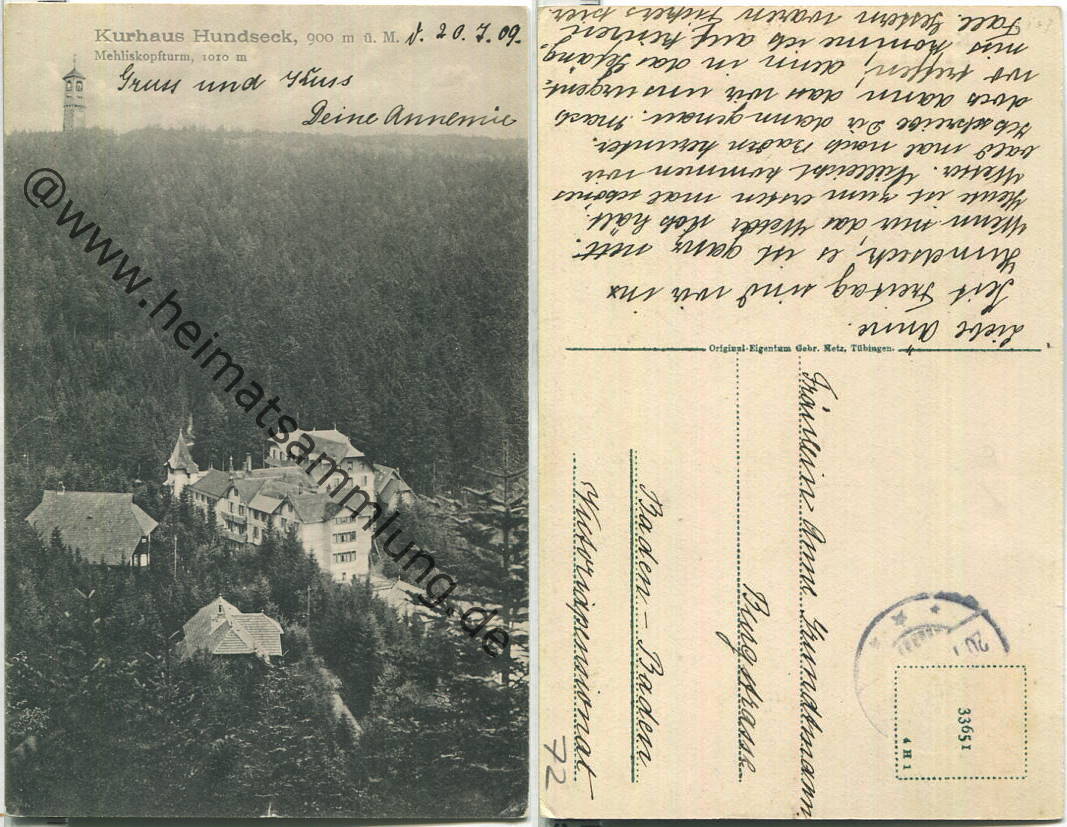 Kurhaus Hundseck, 900 m ü. M. d. 20.7.09.
Mehliskopfturm, 1010 m
Gruss und Kuss
Deine Annemie
@www.heimatsammlung.de
Liebe Anne.
Seit Freitag sind wir in
Hundseck, es ist ganz nett.
Wenn nur das Wetter noch hält.
Heute ist zum ersten mal schönes
Wetter. Vielleicht kommen wir
bald mal nach Baden herunter.
Ich schreibe Dir dann genau. Mach
doch dann, dass wir uns irgend-
wo treffen, denn in das
komme ich auf keinen
Fall. Gestern waren hier.
Original-Eigentum Gebr. Metz, Tübingen.
Fräulein Anne Grundtmann.
Burgstrasse
Baden-Baden.
Victoriapensionat.
33651
4 H 1
72